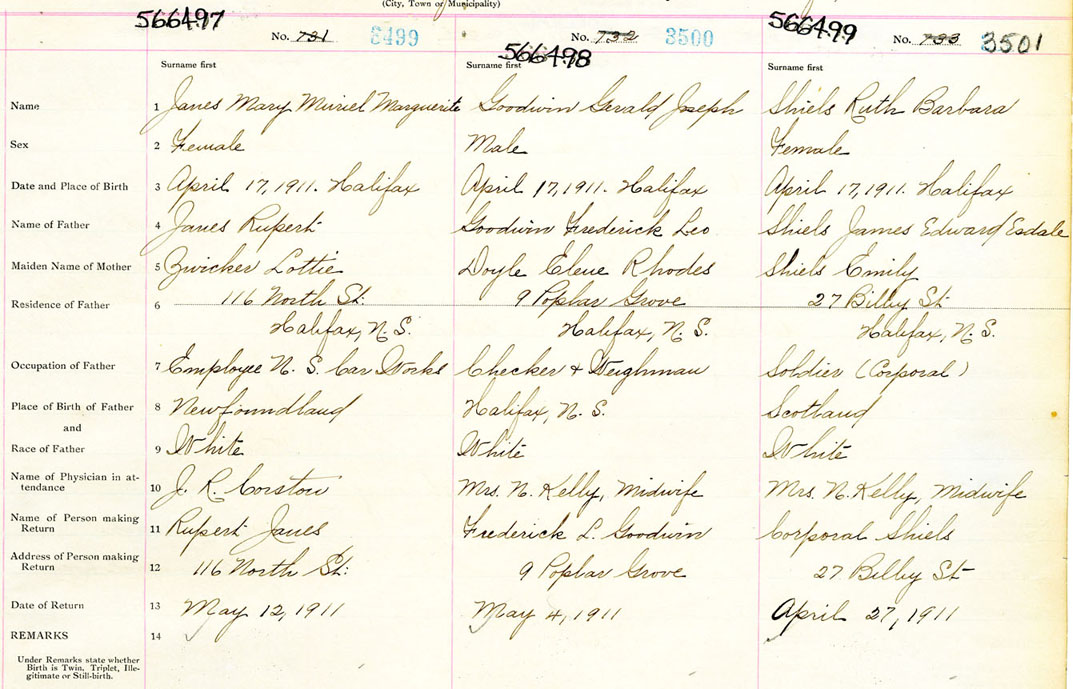 (City, Town or Municipality)
566497 566498 566499
No. 731 3499 No. 732 3500 No. 733 3501
Surname first Surname first Surname first
Name 1 Janes Mary Muriel Marguerite Goodwin Gerald Joseph Shiels Ruth Barbara
Sex 2 Female Male Female
Date and Place of Birth 3 April 17, 1911. Halifax April 17, 1911. Halifax April 17, 1911. Halifax
Name of Father 4 Janes Rupert Goodwin Frederick Leo Shiels James Edward Esdale
Maiden Name of Mother 5 Zwicker Lottie Doyle Elene Rhodes Shiels Emily
Residence of Father 6 116 North St. 9 Poplar Grove 27 Bilby St
Halifax, N. S. Halifax, N. S. Halifax, N. S.
Occupation of Father 7 Employee N. S. Car Works Checker & Weighman Soldier (Corporal)
Place of Birth of Father 8 Newfoundland Halifax, N. S. Scotland
and
Race of Father 9 White White White
Name of Physician in at-
tendance 10 J. R. Corston Mrs. N. Kelly, Midwife Mrs. N. Kelly, Midwife
Name of Person making
Return 11 Rupert Janes Frederick L. Goodwin Corporal Shiels
Address of Person making
Return 12 116 North St. 9 Poplar Grove 27 Bilby St
Date of Return 13 May 12, 1911 May 4, 1911 April 27, 1911
REMARKS 14
Under Remarks state whether
Birth is Twin, Triplet, Ille-
gitimate or Still-birth.